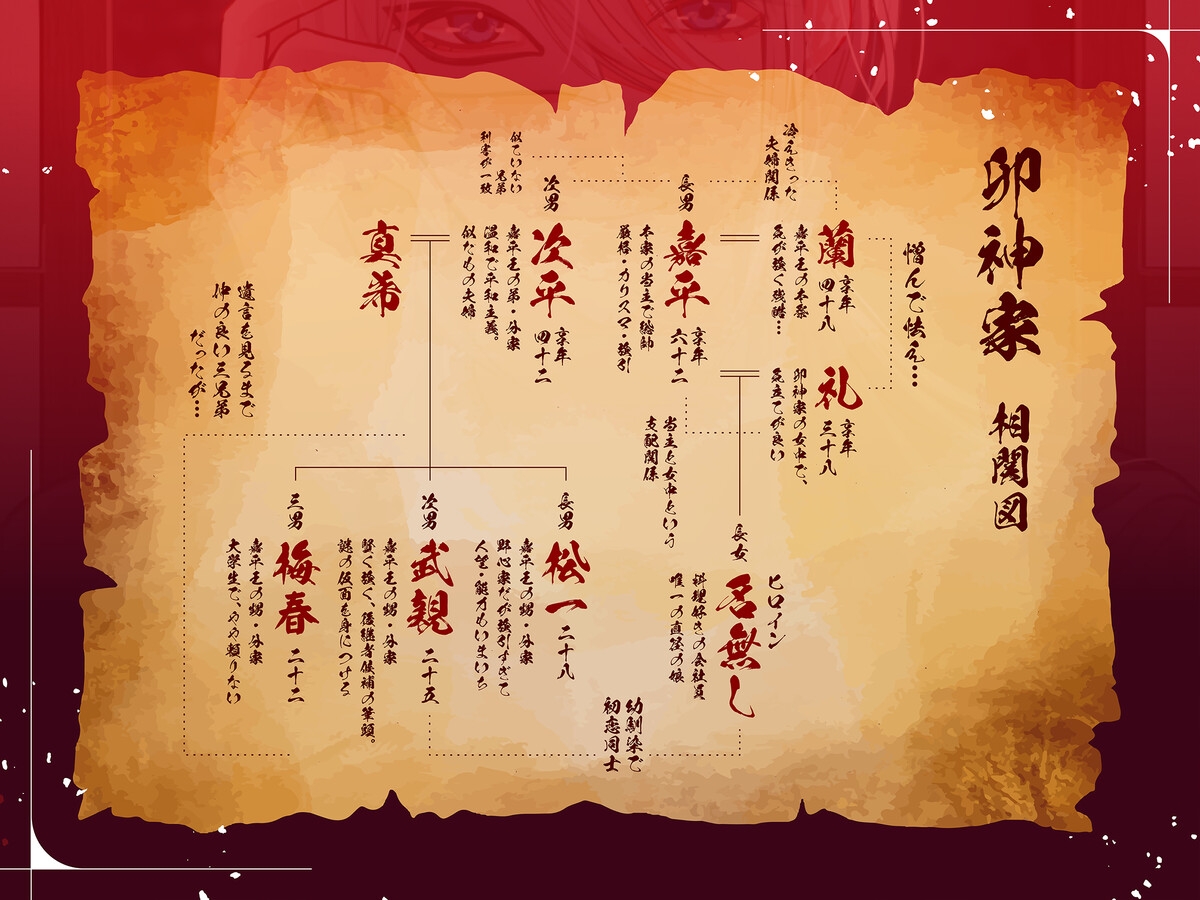 卯神家 相関図
憎んで怯え…
蘭
享年 四十八
嘉平との本妻
気が強く残酷…
冷えきった
夫婦関係
礼
享年 三十八
卯神家の女中で、
気立てが良い
長男
嘉平
享年 六十二
本家の当主で総帥
厳格・カリスマ・強引
当主と女中という
支配関係
ヒロイン
長女
名無し
料理好きの会社員
唯一の直径の娘
次男
次平
享年 四十二
嘉平との弟・分家
温和で平和主義。
似たもの夫婦
似ていない
兄弟
利害が一致
真希
長男
松一 二十八
嘉平との甥・分家
野心家だが強引すぎて
人望・能力もいまいち
次男
武親 二十五
嘉平との甥・分家
賢く強く、後継者候補の筆頭。
謎の仮面を身につける
三男
梅春 二十二
嘉平との甥・分家
大学生で、やや頼りない
幼馴染で
初恋同士
遺言を見るまで
仲の良い三兄弟
だったが…